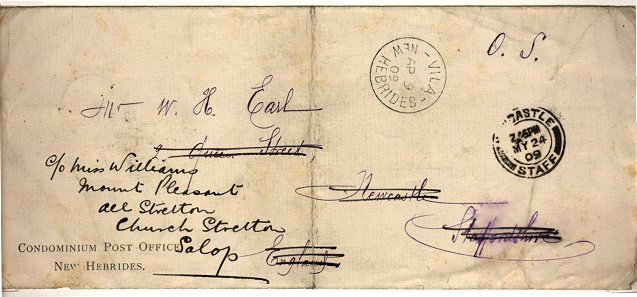 O. S.
VILA
AP 9
09
NEW HEBRIDES
Mr W. H. Earl
Queen Street,
Newcastle
Staffordshire
England
CASTLE
2.45PM
MY 24
09
STAFF
c/o Miss Williams
Mount Pleasant
All Stretton
Church Stretton
Salop
CONDOMINIUM POST OFFICE
NEW HEBRIDES.